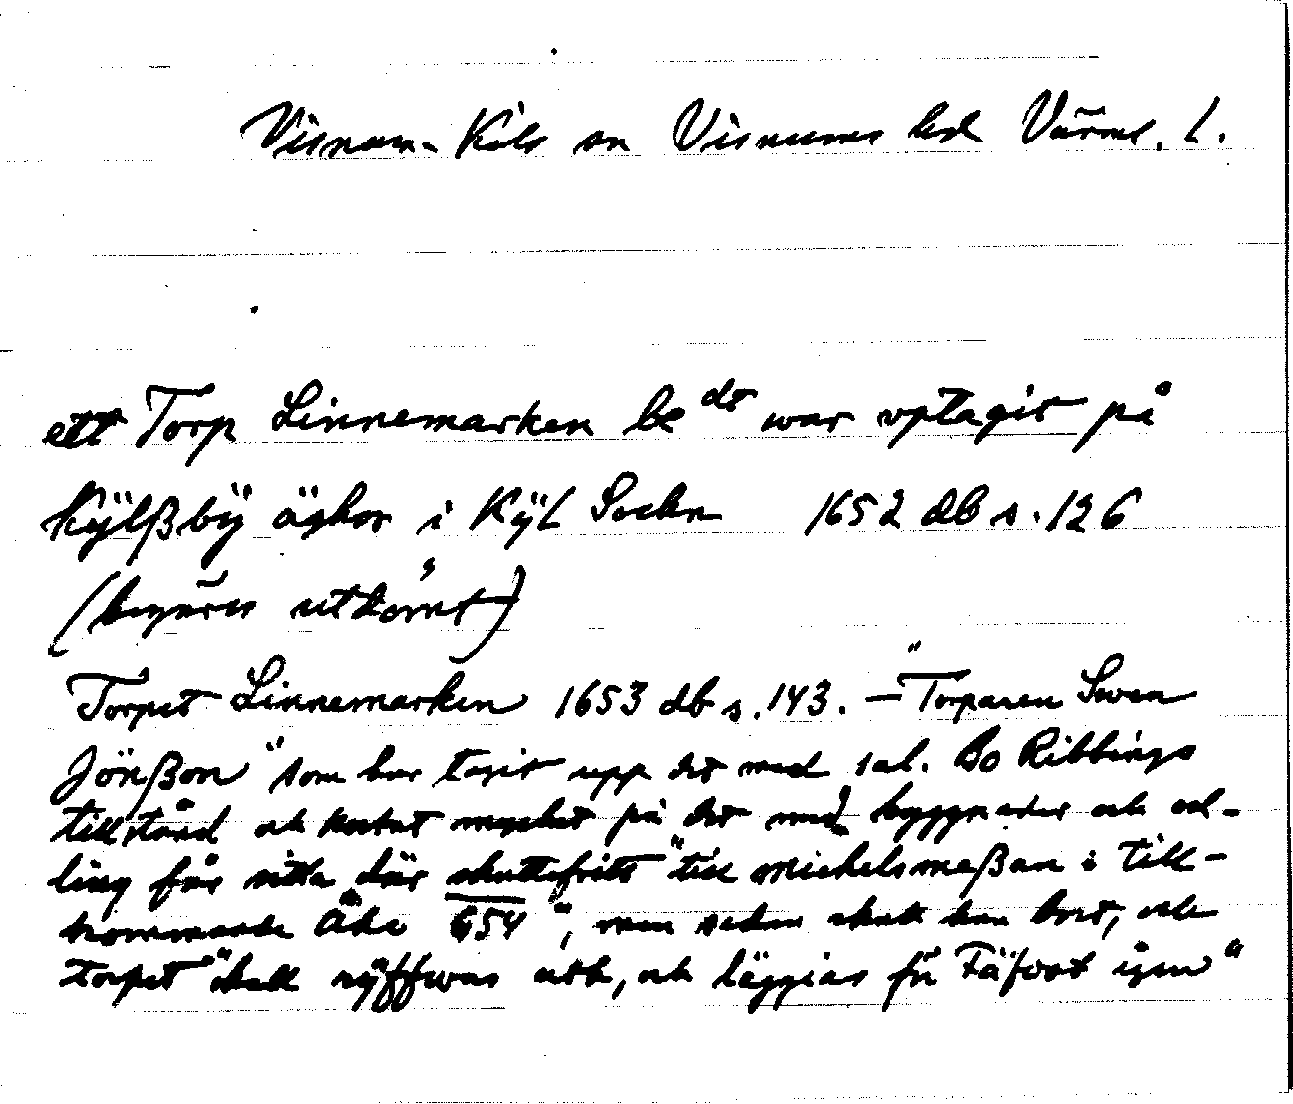 Visnum-Kils sn Visnums hd Värml. l.
ett Torp Linnemarken be dt war vptagit på
Kÿlßbÿ äghor i Kÿl Sockn 1652 db s. 126
(begäres utkört)
Torpet Linnemarken 1653 db s. 143. – "Torparen Swen
Jönßon" som har tagit upp det med sal. Bo Ribbings
tillstånd och kostat mycket på det med byggnader och od-
ling får sitta där skattefritt "till Michelsmeßan i till-
kommande Åhr 654", men sedan skall han bort, och
torpet "skall rÿffwas uth, och läggias för Fäfoot igen"